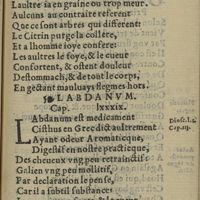 Laultre ia en graine ou trop meur.
Aulcuns au contraire referent
Que ce sont arbres qui different
Le Citrin purge la collere,
Et a lhomme ioye confere:
Les aultres le foye, & le cueur
Confortent, & ostent douleur
Destommach, & de tout le corps,
En gectant maulvays flegmes hors.
LABDANVM.
Cap. lxxxix.
LAbdanum est medicament
Cisthus en Grec dict aultrement
Ayant odeur Aromaticque,
Digestif en nostre practicque,
Des cheueux vng peu retrainctif:
Galien vng peu mollitif,
Par declaration le pense,
Car il a subtil substance
Diosc. l. 1.
Cap. III.